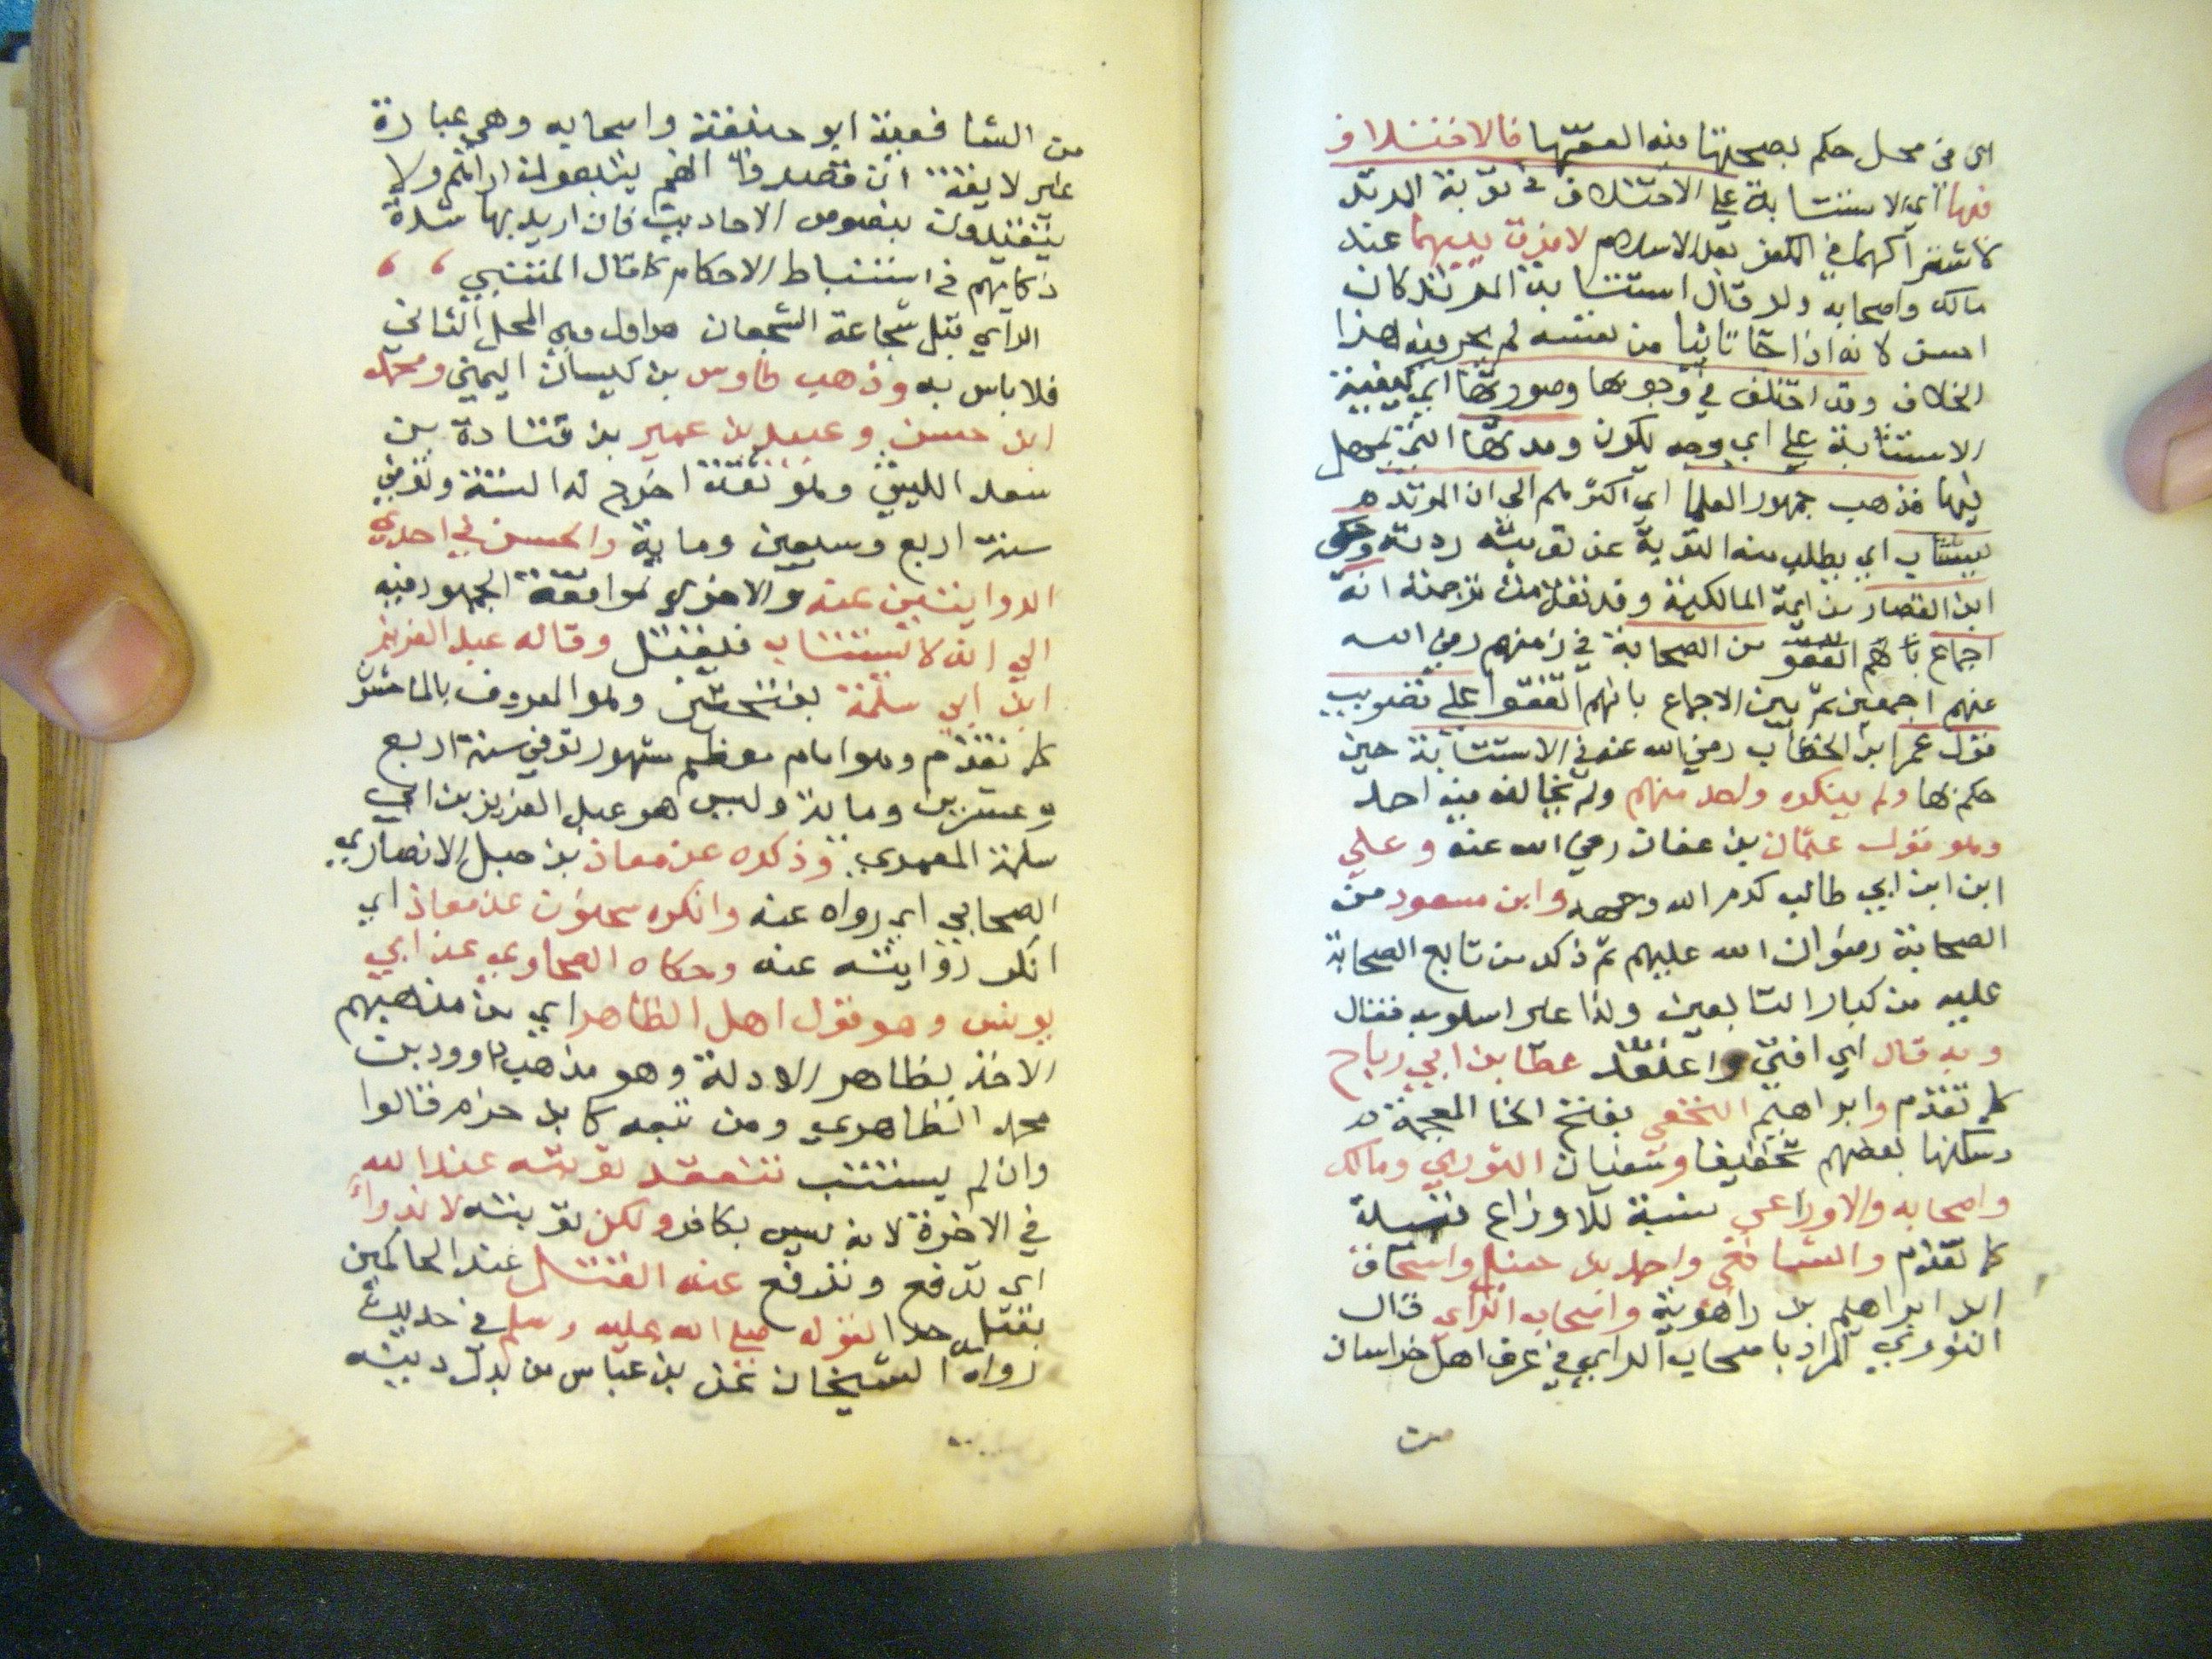 اي في محل حكم بصحتها منه الفقها فالاختلاف
فيها اي الاستتابة على الاختلاف في توبة المرتد
لاشتراكهما في الكفر بعد الاسلام لا فرق بينهما عند
مالك واصحابه ولو قال استتابة المرتد كان
احسن لانه اذا جا تائبا من نفسه لم يجر فيه هذا
الخلاف وقد اختلف في وجوبها وصورتها اي كيفية
الاستتابة على اي وجه يكون ومدتها التي يمهل
فيها فذهب جمهور العلما اي اكثرهم الى ان المرتد
يستتاب اي يطلب منه التوبة عن ردته وحكى
ابن القصار من ايمة المالكية وقد تقدمت ترجمته انه
اجماع بانهم اتفقوا من الصحابة في زمنهم رضي الله
عنهم اجمعين ثم بين الاجماع بانهم اتفقوا على تصويب
قول عمر ابن الخطاب رضي الله عنه في الاستتابة حين
حكم بها ولم ينكره واحد منهم ولم يخالفه فيه احد
وهو قول عثمان بن عفان رضي الله عنه وعلي
ابن ابن ابي طالب كرم الله وجهه وابن مسعود من
الصحابة رضوان الله عليهم ثم ذكر من تابع الصحابة
عليه من كبار التابعين ولذا غير اسلوبه فقال
وبه قال اي افتى واعتقد عطا بن ابي رباح
كما تقدم وابراهيم النخعي بفتح الخا المعجمة
وسكنها بعضهم تخفيفا وسفيان الثوري ومالك
واصحابه والاوزاعي نسبة للاوزاع قبيلة
كما تقدم والشافعي واحمد بن حنبل واسحاق
ابن ابراهيم بن راهوية واصحاب الراي قال
النووي المراد باصحاب الراي في عرف اهل خراسان
من
من الشافعية ابو حنيفة واصحابه وهي عبارة
غير لايقة ان قصدوا انهم يتبعون ارائهم ولا
يتقيدون بنصوص الاحاديث فان اريد بها شدة
ذكائهم في استنباط الاحكام كما قال المتنبي
الراي قبل شجاعة الشجعان هو اول وهي المحل الثاني
فلا باس به وذهب طاوس بن كيسان اليمني ومحمد
ابن حسن وعبيد بن عمير بن قتادة بن
سعد الليثي وهو ثقة اخرج له الستة وتوفي
سنة اربع وسبعين وماية والحسن في احدى
الروايتين عنه والاخرى لموافقة الجمهور فيه
الى انه لا يستتاب فليقتل وقاله عبد العزيز
ابن ابي سلمة بفتحتين وهو المعروف بالماجشون
كما تقدم وهو امام معظم مشهور توفي سنة اربع
وعشرين وماية وليس هو عبد العزيز بن ابي
سلمة العمري وذكره عن معاذ بن جبل الانصاري
الصحابي اي رواه عنه وانكره سحنون عن معاذ اي
انكر روايته عنه وحكاه الطحاوي عن ابي
يوسف وهو قول اهل الظاهر اي من مذهبهم
الاخذ بظاهر الادلة وهو مذهب داوود بن
محمد الظاهري ومن تبعه كابن حزم قالوا
وان لم يستتب تنفعه توبته عند الله
في الاخرة لانه ليس بكافر ولكن توبته لا تدرأ
اي تدفع وترفع عنه القتل عند الحاكمين
بقتله حدا لقوله صلى الله عليه وسلم في حديث
رواه الشيخان عن بن عباس من بدل دينه